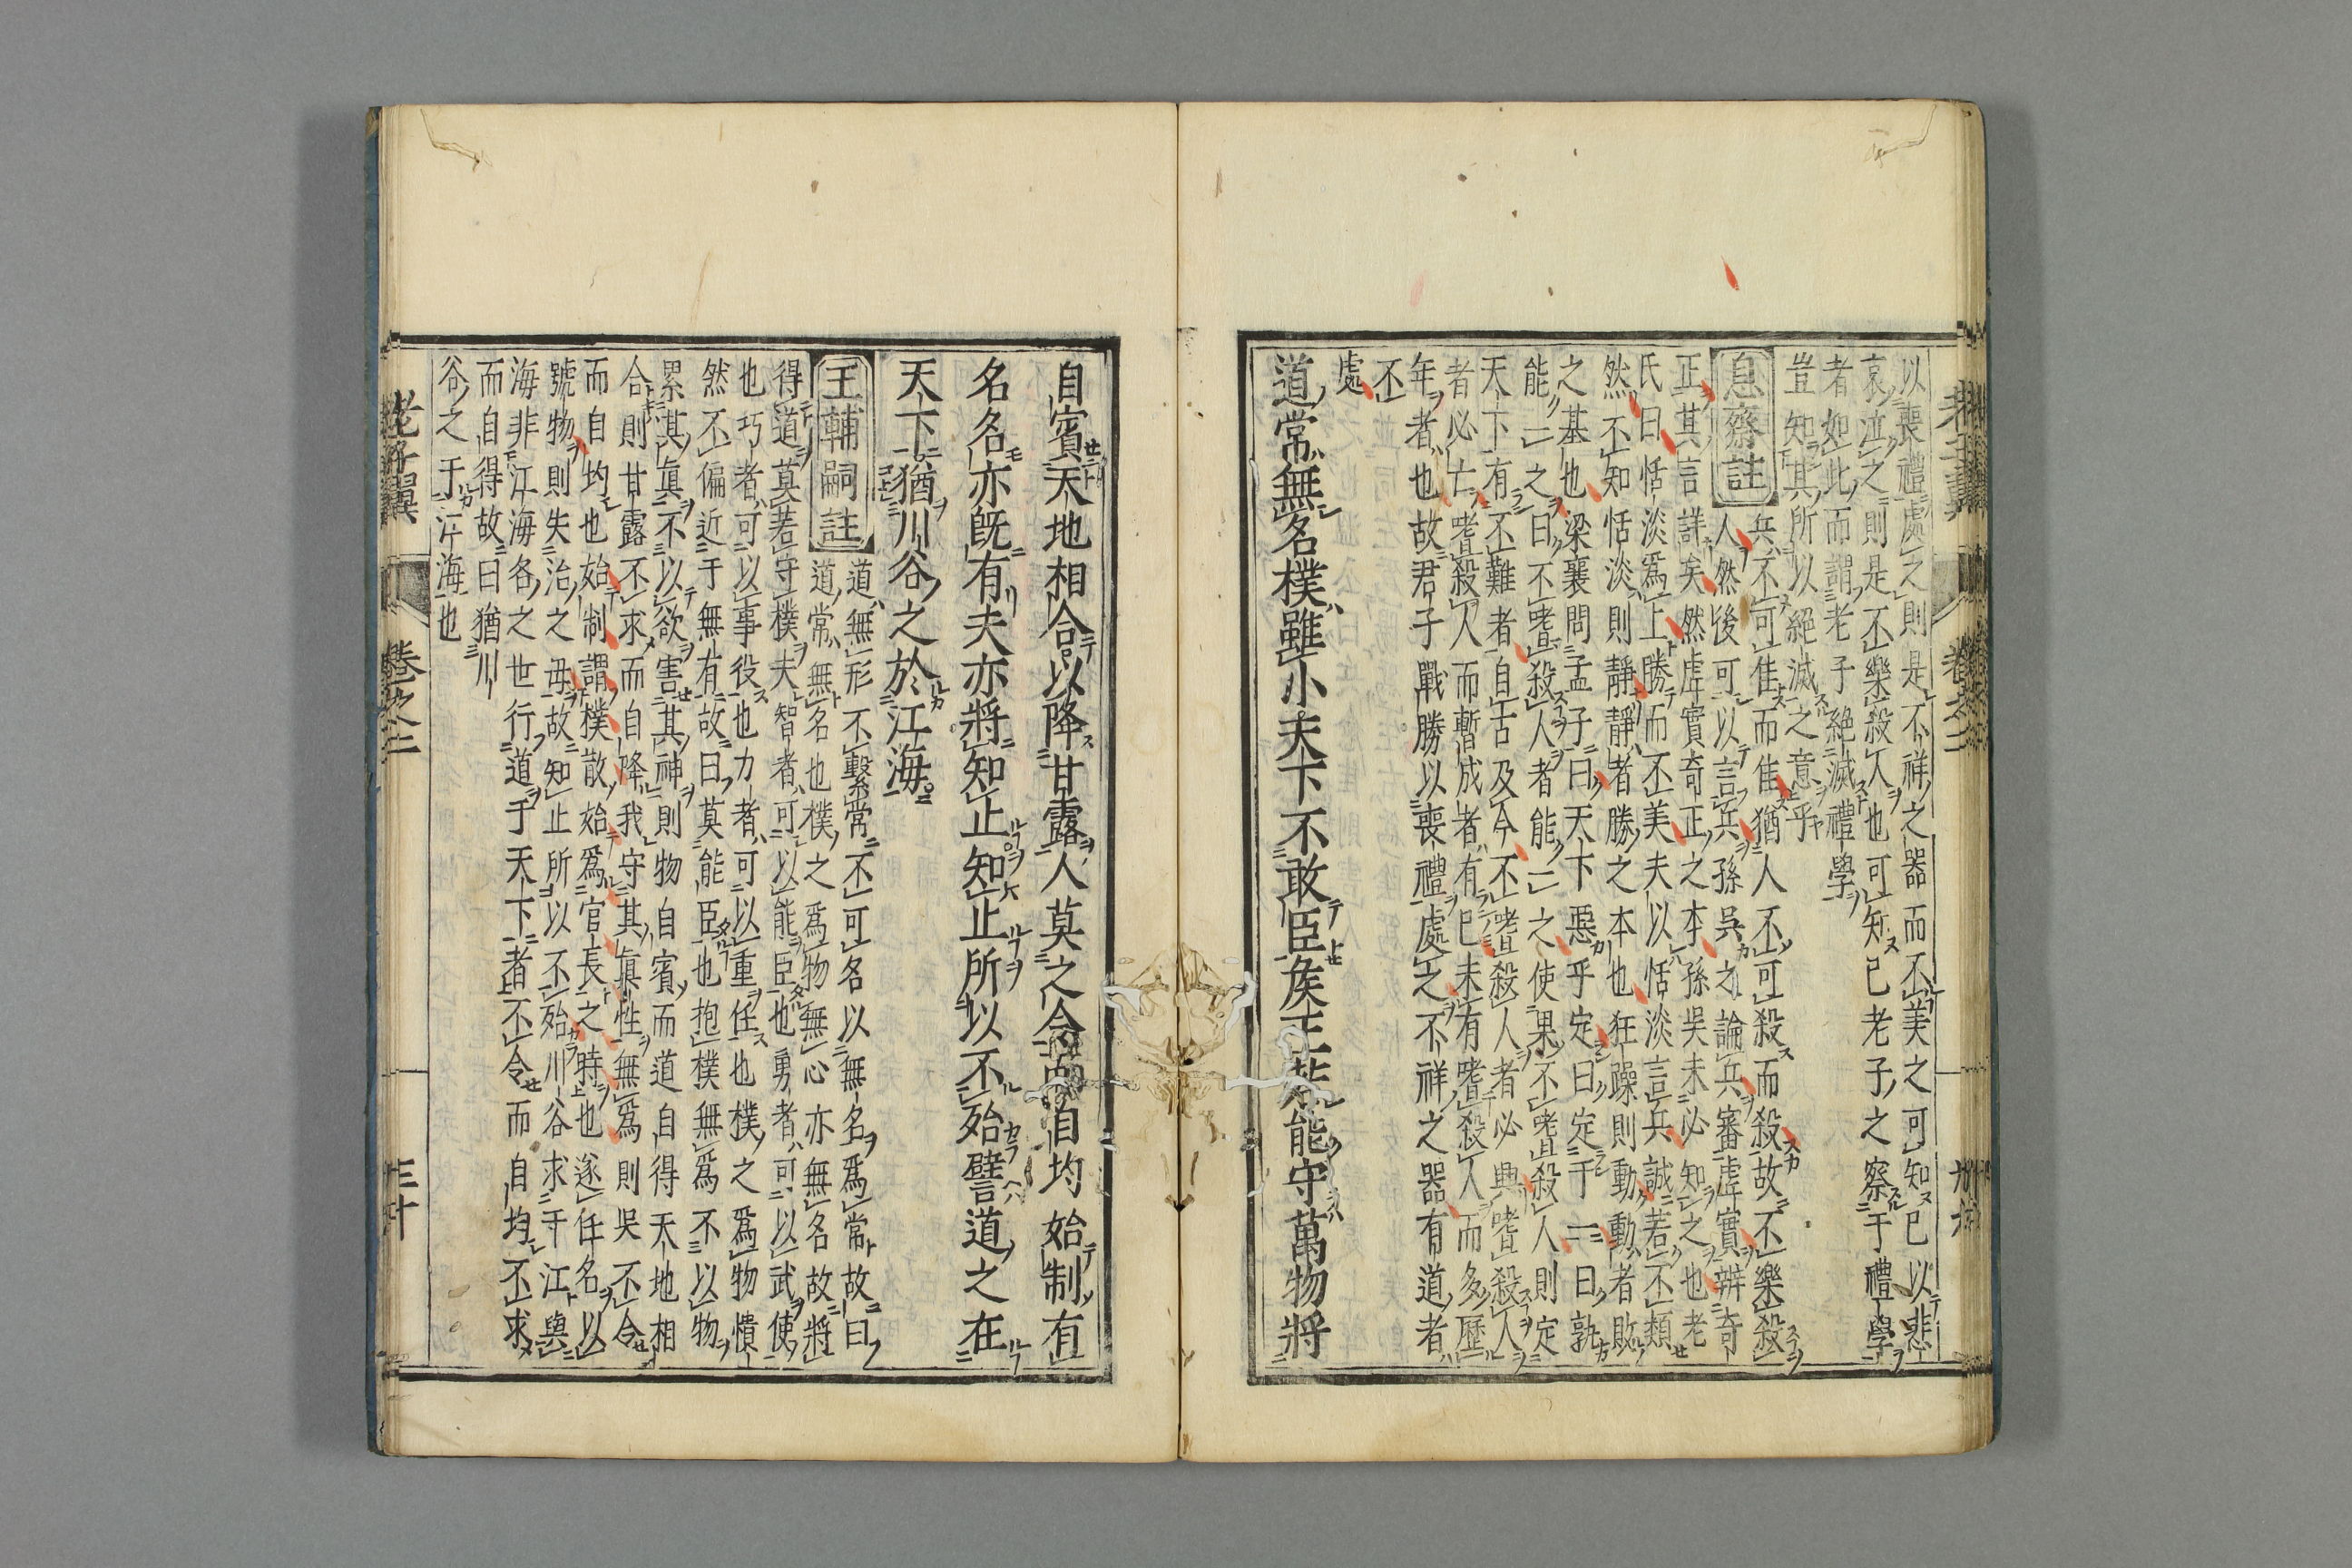 以喪禮處之則是不祥之器而不美之可知已以悲
哀泣之則是不樂殺人也可知已老子之察于禮學
者如此而謂老子絕滅禮學
豈知其所以絕滅之意乎
息齋註
兵不可佳而佳猶人不可殺而殺故不樂殺
人然後可以言兵孫吳之論兵審虛實辨奇
正其言詳矣然虛實奇正之本孫吳未必知之也老
氏曰恬淡爲上勝而不美夫以恬淡言兵誠若不類
然不知恬淡則靜靜者勝之本也狂躁則動動者敗
之基也梁襄問孟子曰天下惡乎定曰定于一曰孰
能一之曰不嗜殺人者能一之使果不嗜殺人則定
天下有不難者自古及今不嗜殺人者必興嗜殺人
者必亡嗜殺人而暫成者有已未有嗜殺人而多歷
年者也故君子戰勝以喪禮處之不祥之器有道者
不
處
道常無名樸雖小天下不敢臣矦王若能守萬物將
老子翼 卷之二
自賓天地相合以降甘露人莫之令而自均始制有
名名亦旣有夫亦將知止知止所以不殆譬道之在
天下猶川谷之於江海
王輔嗣註
道無形不繫常不可名以無名爲常故曰
道常無名也樸之爲物無心亦無名故將
得道莫若守樸夫智者可以能臣也勇者可以武使
也巧者可以事役也力者可以重任也樸之爲物憒
然不偏近于無有故曰莫能臣也抱樸無爲不以物
累其眞不以欲害其神則物自賓而道自得天地相
合則甘露不求而自降我守其眞性無爲則吳不令
而自均也始制謂樸散始爲官長之時也遂任名以
號物則失治之母故知止所以不殆川谷求于江與
海非江海各之世行道于天下者不令而自均不求
而自得故曰猶川
谷之于江海也
老子翼 卷之二 三十